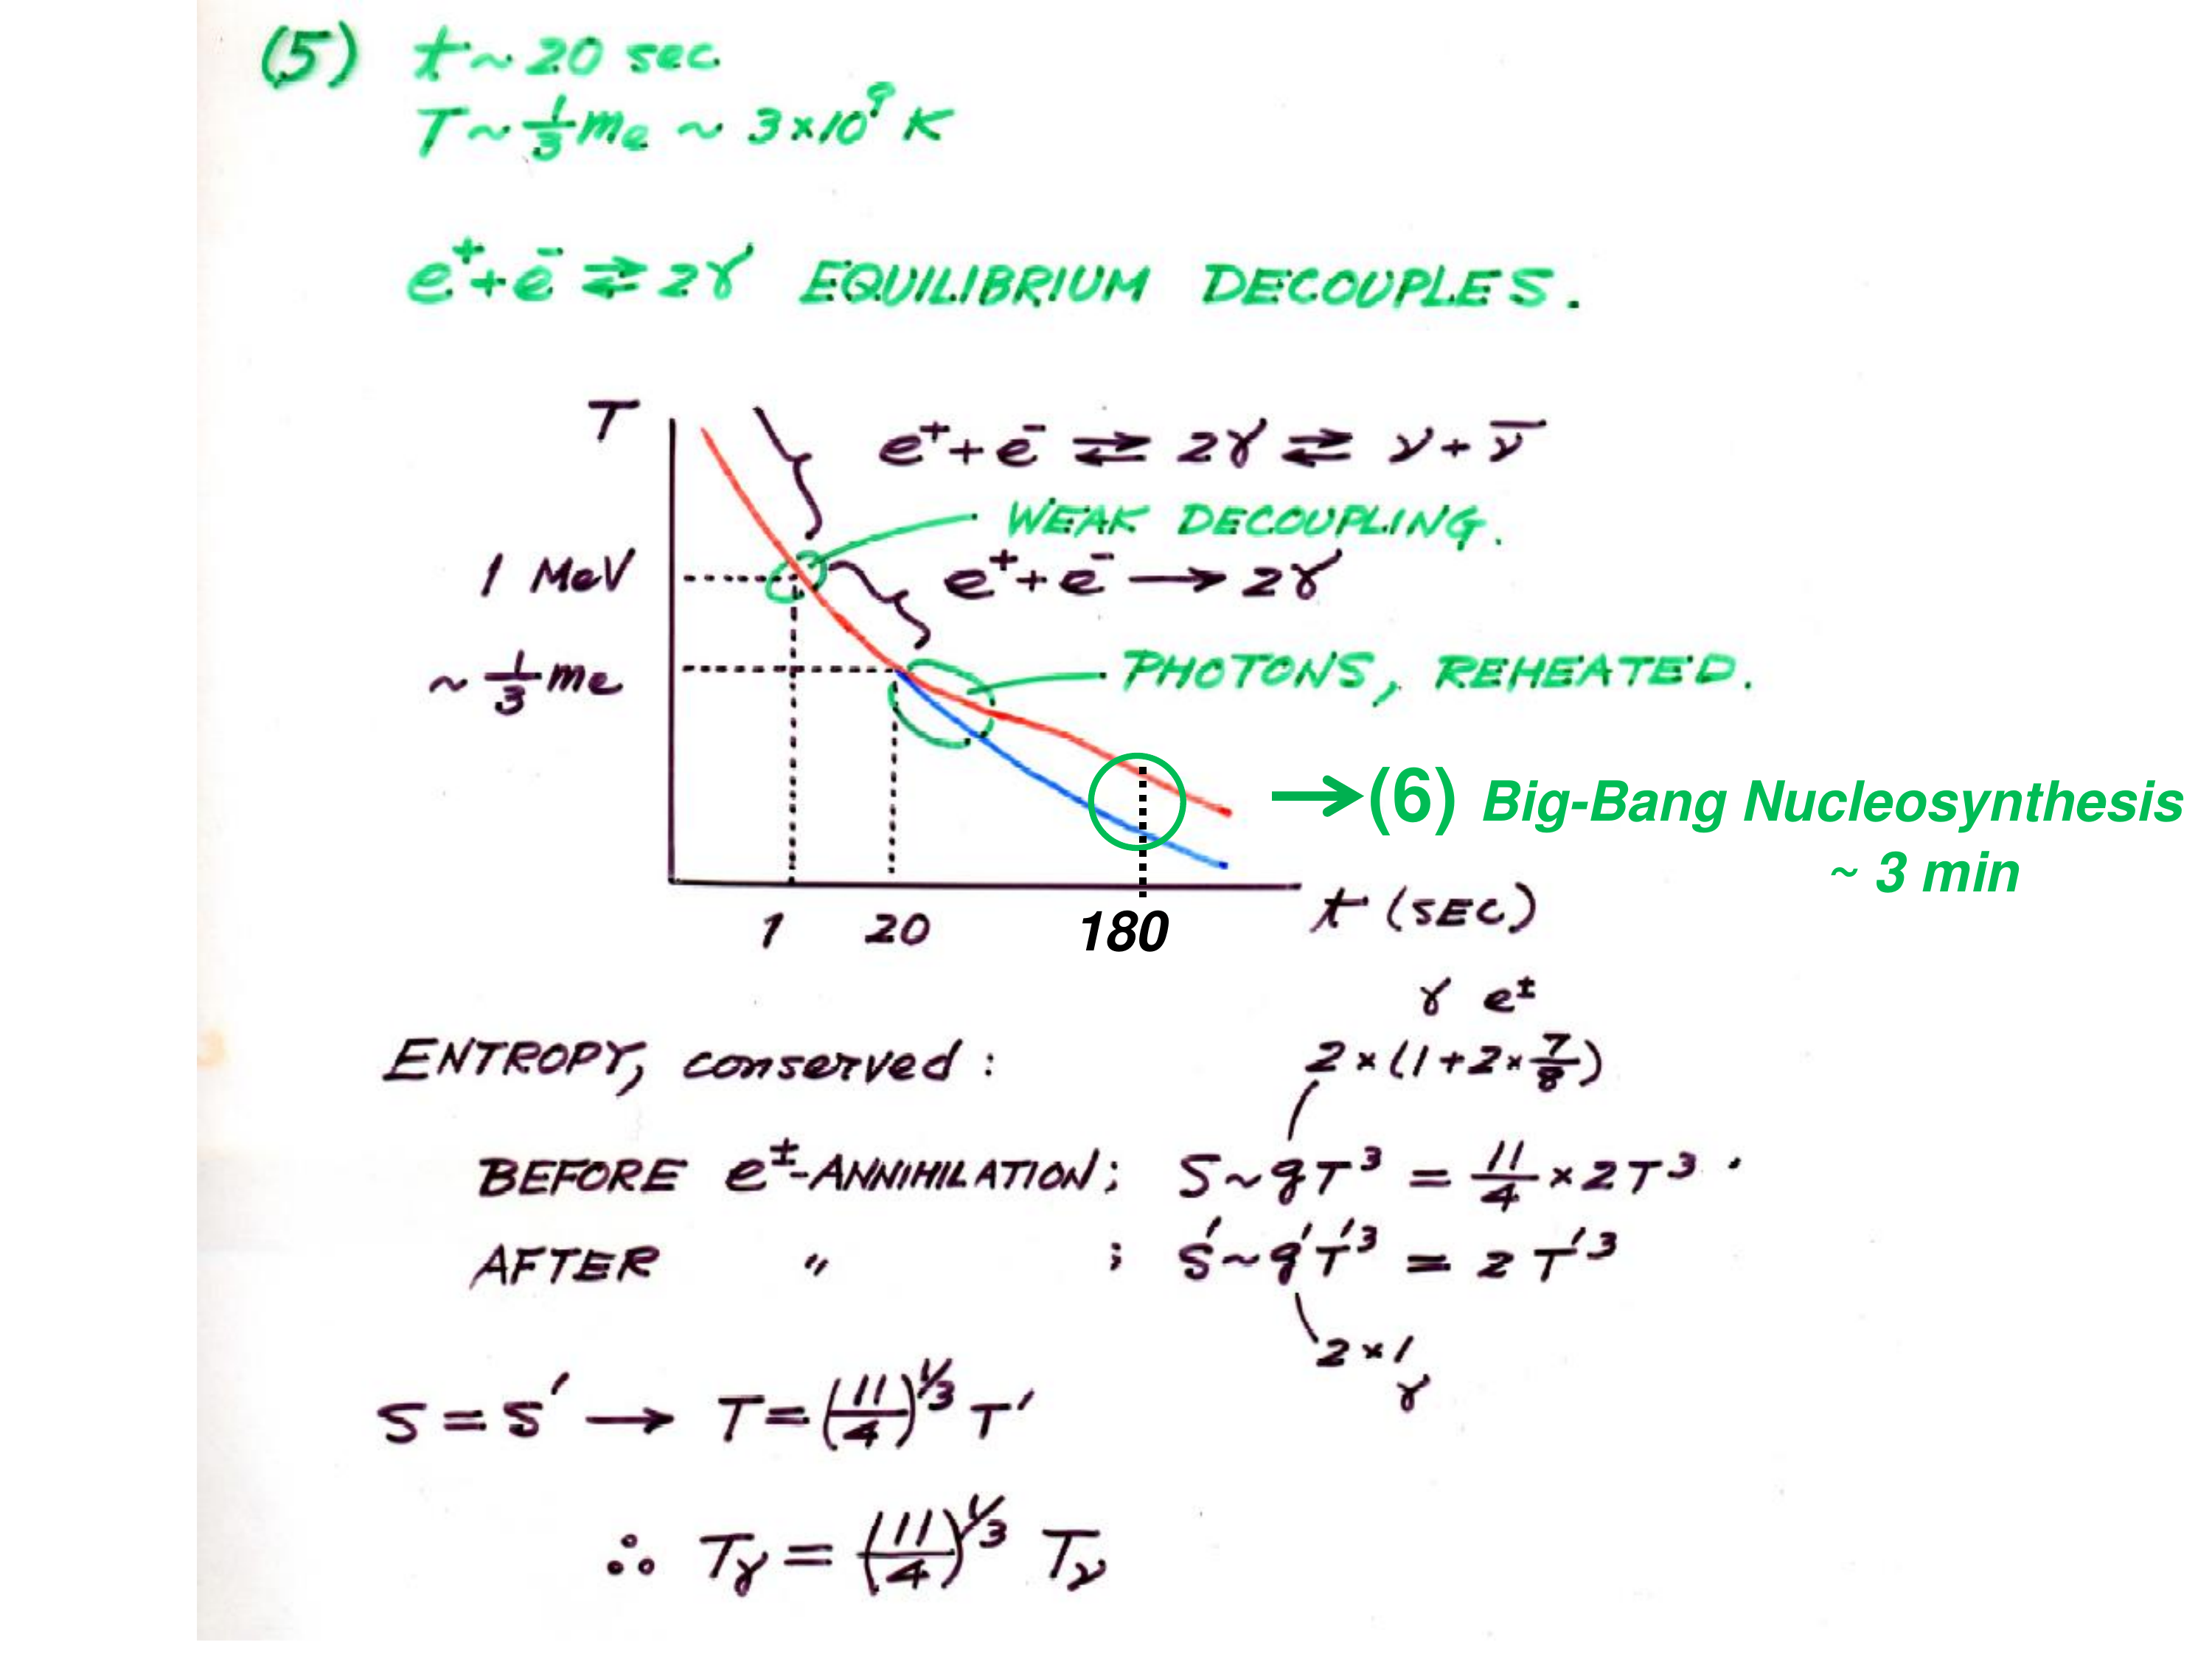 (5) t ~ 20 sec
T ~ 1/3 me ~ 3×10⁹ K
e⁺+e⁻ ⇄ 2γ EQUILIBRIUM DECOUPLES.
T
e⁺+e⁻ ⇄ 2γ ⇄ ν+ν̅
WEAK DECOUPLING.
1 MeV
e⁺+e⁻ → 2γ
~ 1/3 me
PHOTONS, REHEATED.
→(6) Big-Bang Nucleosynthesis
~ 3 min
1 20 180 t (SEC)
γ e±
ENTROPY, conserved : 2×(1+2×7/8)
BEFORE e±-ANNIHILATION; S~gT³ = 11/4 ×2T³.
AFTER 〃 ; S′~g′T′³ = 2T′³
2×1
γ
S = S′ → T=(11/4)^1/3 T′
∴ Tγ = (11/4)^1/3 Tν